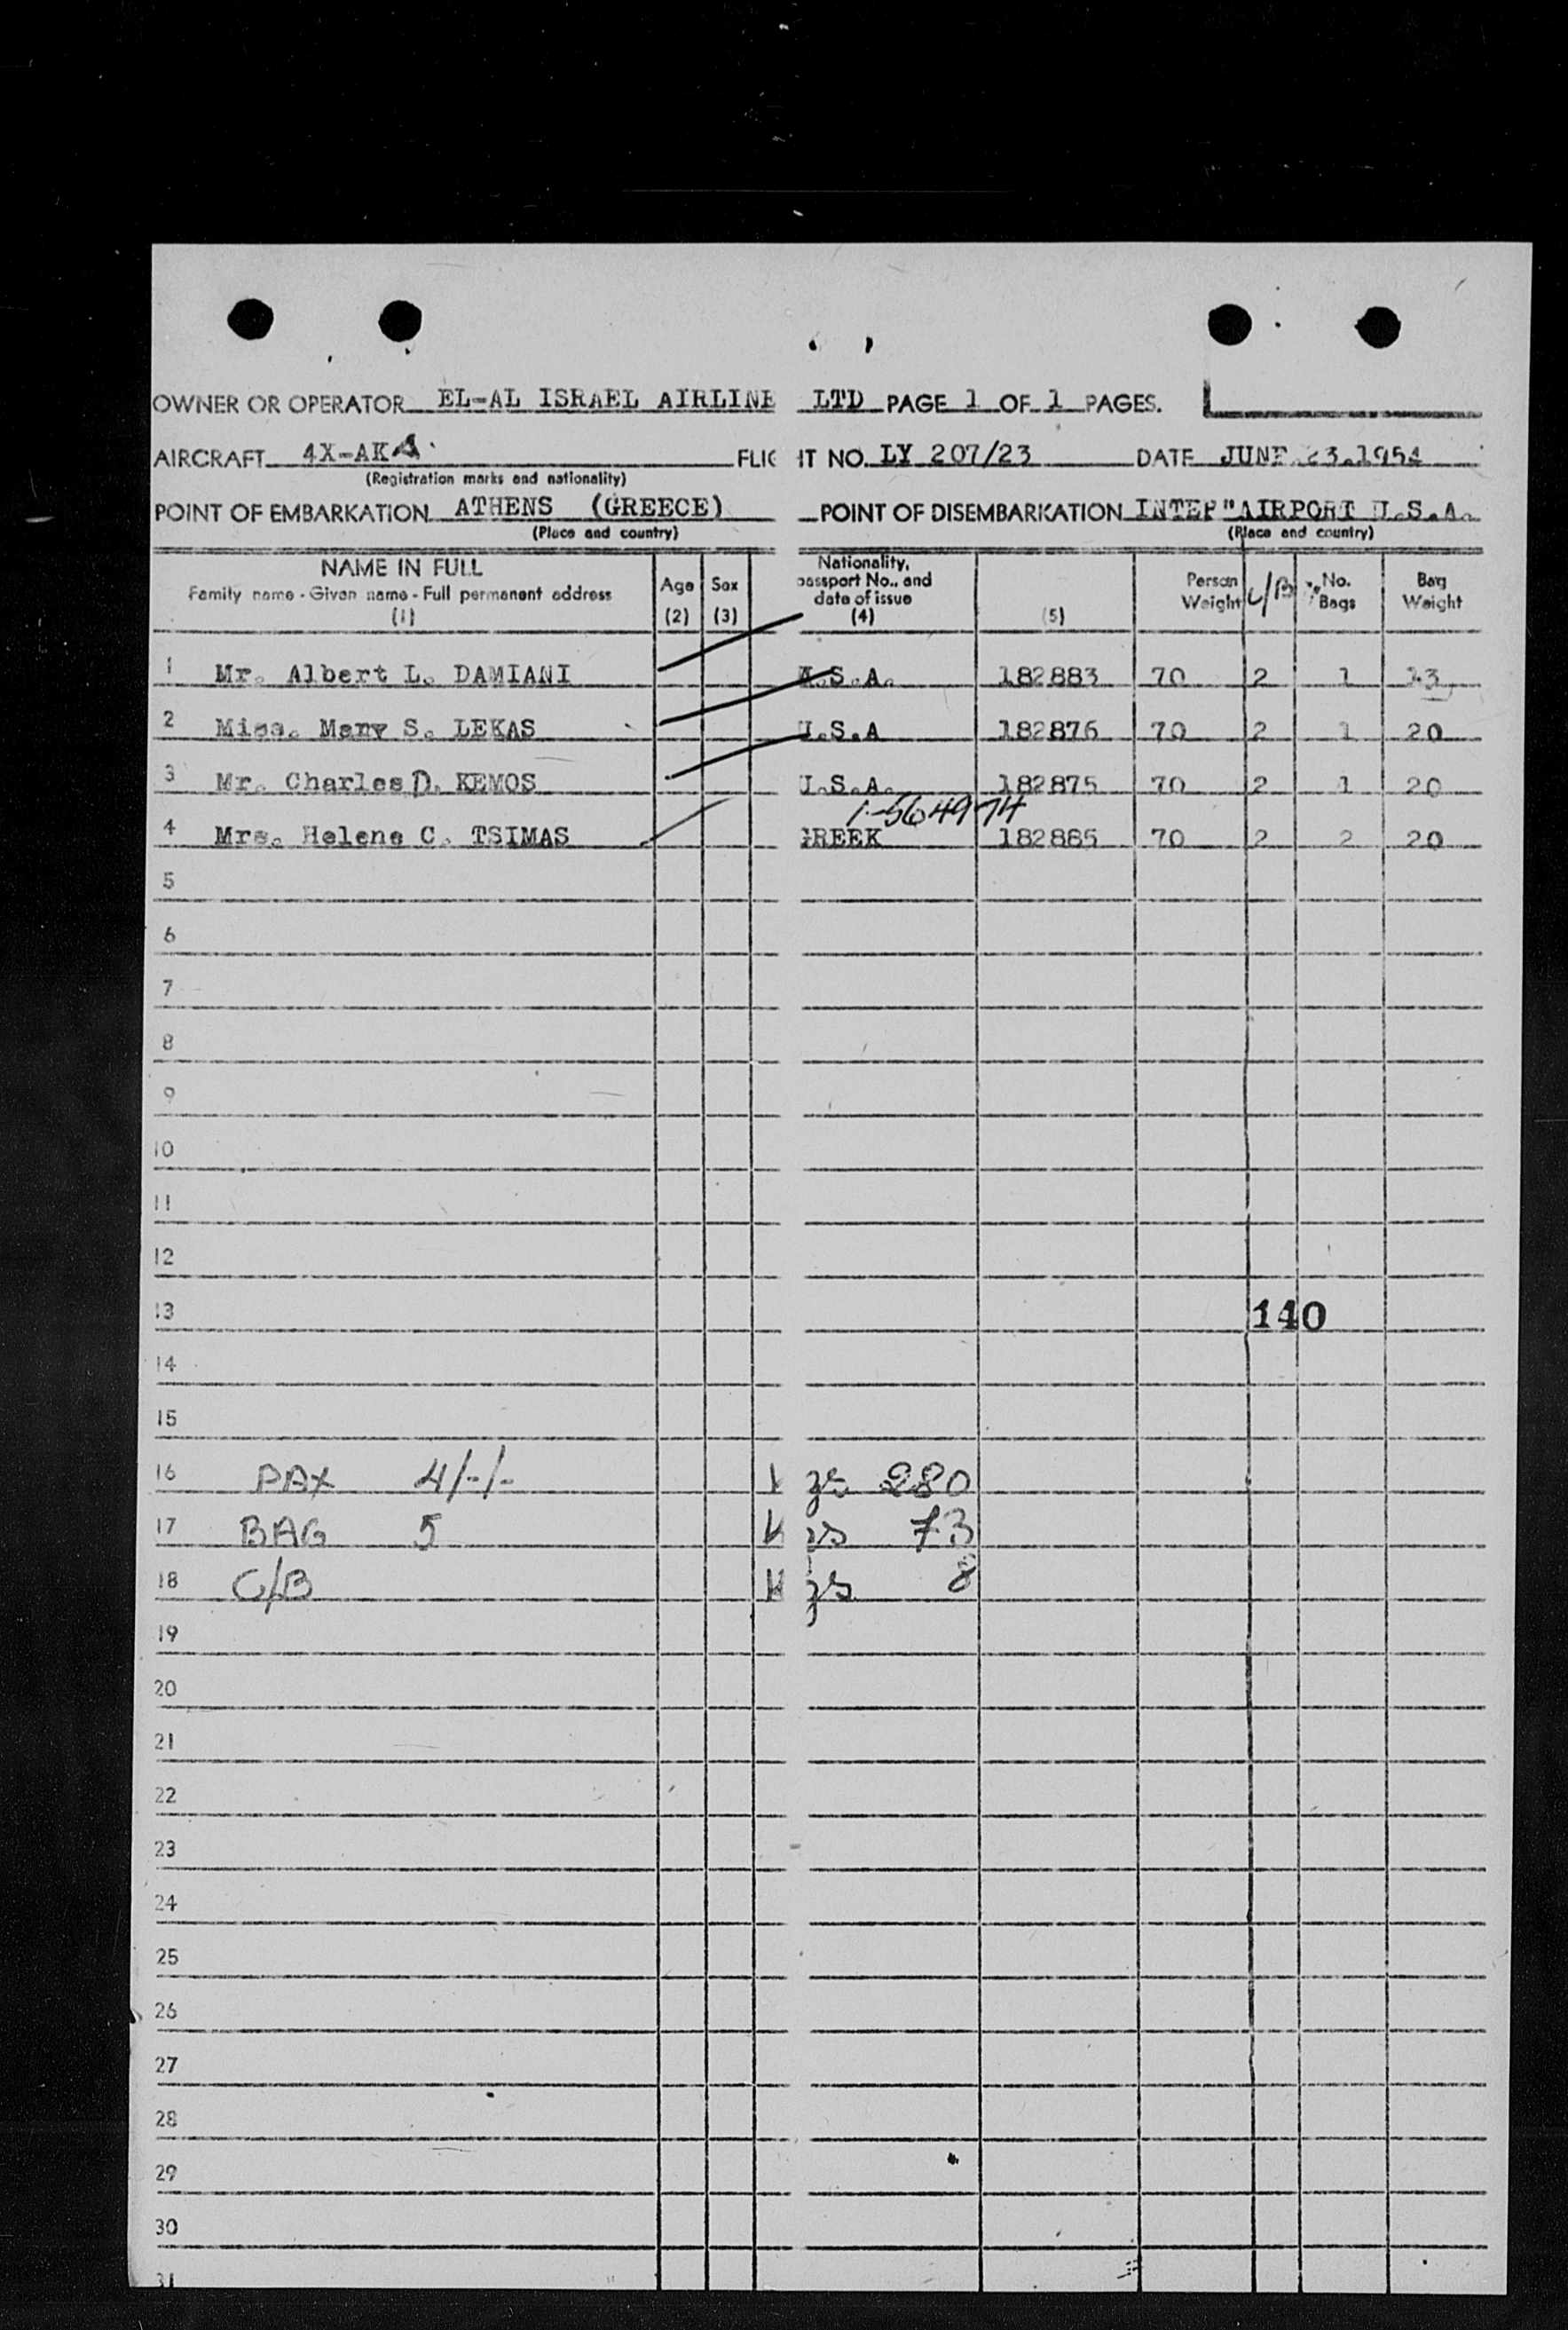 OWNER OR OPERATOR EL-AL ISRAEL AIRLINE LTD PAGE 1 OF 1 PAGES.
AIRCRAFT 4X-AKA FLIG HT NO. LY 207/23 DATE JUNE 23.1954
(Registration marks and nationality)
POINT OF EMBARKATION ATHENS (GREECE) POINT OF DISEMBARKATION INTER"AIRPORT U.S.A.
(Place and country) (Place and country)
NAME IN FULL Age Sex Nationality, passport No., and date of issue Person Weight C/B No. Bags Bag Weight
Family name - Given name - Full permanent address
(1) (2) (3) (4) (5)
1 Mr. Albert L. DAMIANI U.S.A. 182883 70 2 1 13
2 Miss. Mary S. LEKAS U.S.A 182876 70 2 1 20
3 Mr. Charles D. KEMOS U.S.A. 182875 70 2 1 20
1-5649 74
4 Mrs. Helene C. TSIMAS GREEK 182885 70 2 2 20
5
6
7
8
9
10
11
12
13 140
14
15
16 PAX 4/-/- Kgs 280
17 BAG 5 Kgs 73
18 C/B Kgs 8
19
20
21
22
23
24
25
26
27
28
29
30
31